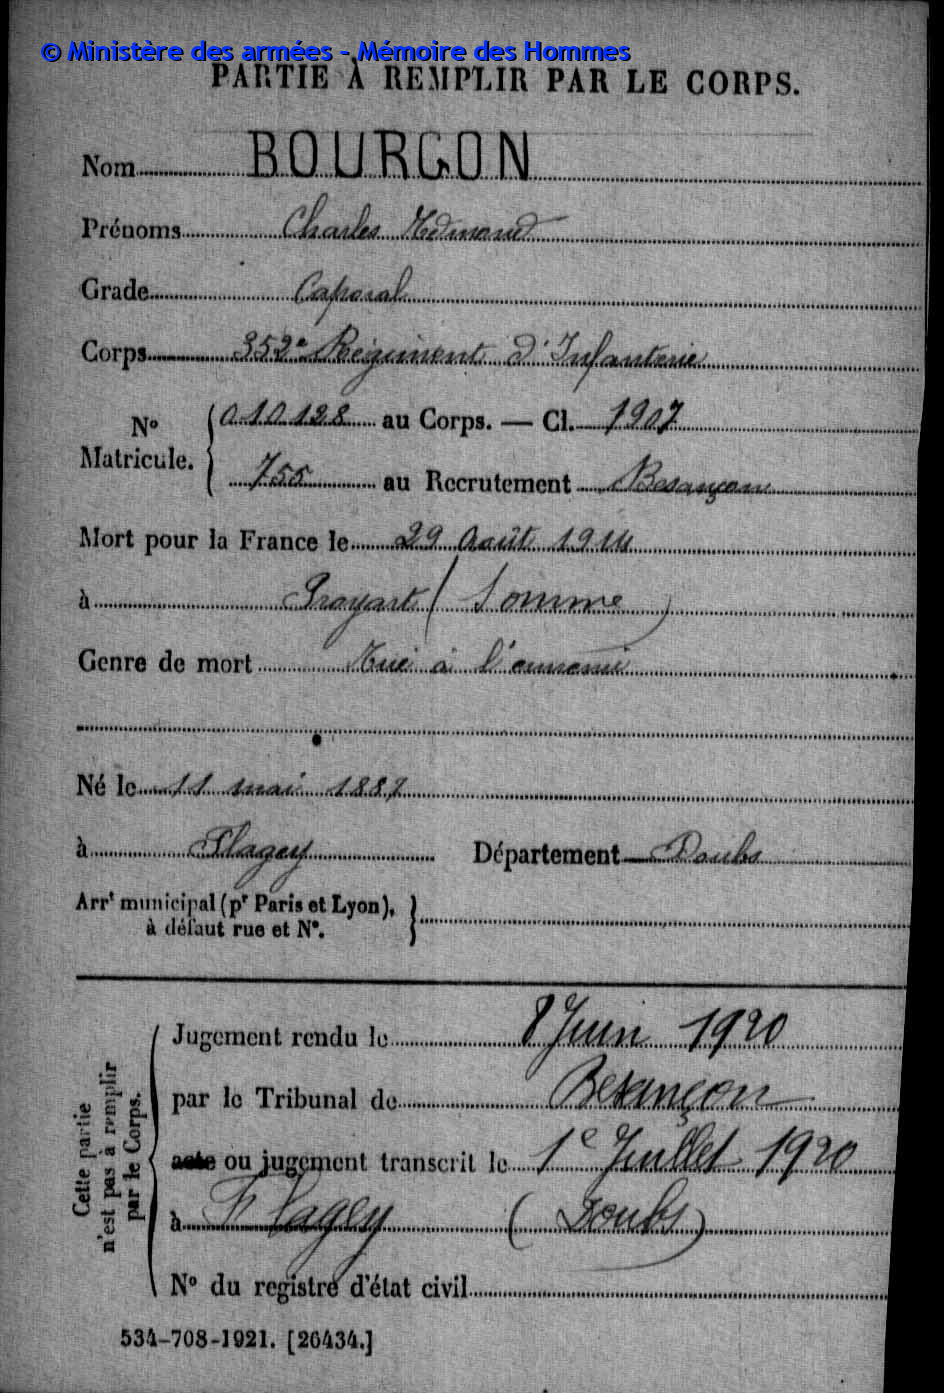 © Ministère des armées - Mémoire des Hommes
PARTIE À REMPLIR PAR LE CORPS.
Nom BOURGON
Prénoms Charles Hedmond
Grade Caporal
Corps 352e Régiment d'Infanterie
No Matricule. { 010128 au Corps. — Cl. 1907
755 au Recrutement Besançon
Mort pour la France le 29 Août 1914
à Proyart (Somme)
Genre de mort Tué à l'ennemi
Né le 11 mai 1887
à Flagey Département Doubs
Arrt municipal (pr Paris et Lyon), }
à défaut rue et No.
Cette partie
n'est pas à remplir
par le Corps.
Jugement rendu le 8 Juin 1920
par le Tribunal de Besançon
acte ou jugement transcrit le 1e Juillet 1920
à Flagey (Doubs)
No du registre d'état civil
534-708-1921. [26434.]